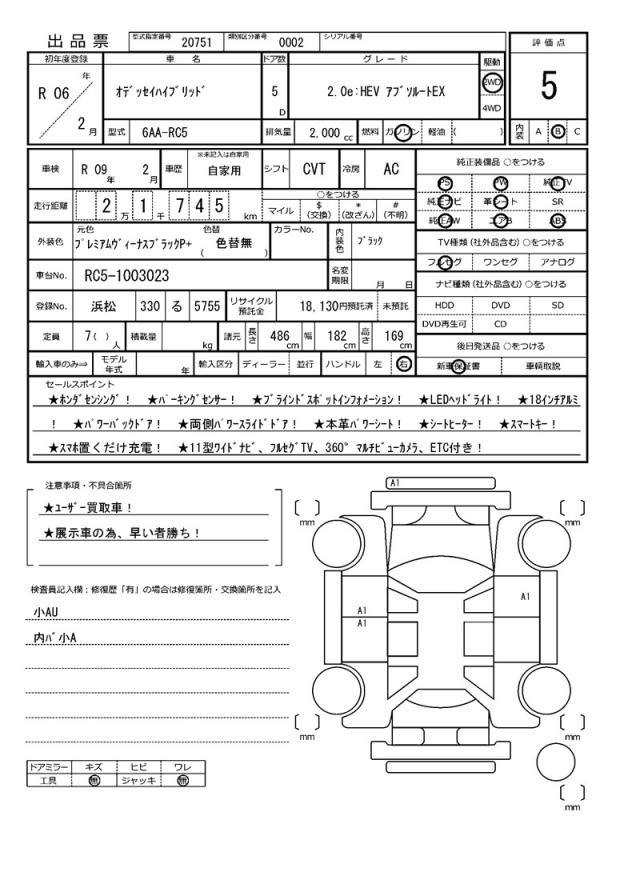 出品票 型式指定番号 20751 類別区分番号 0002 シリアル番号
評価点
5
内装 A B C
初年度登録 車名 ドア数 グレード 駆動
R 06 年 2 月 ｵﾃﾞｯｾｲﾊｲﾌﾞﾘｯﾄﾞ 5 D 2.0e:HEV ｱﾌﾞｿﾙｰﾄEX 2WD 4WD
型式 6AA-RC5 排気量 2,000 cc 燃料 ガソリン 軽油 ( )
車検 R 09 年 2 月 車歴 ※未記入は自家用 自家用 シフト CVT 冷房 AC
走行距離 2 万 1 千 7 4 5 km ○をつける
マイル $ (交換) * (改ざん) # (不明)
外装色 元色 ﾌﾟﾚﾐｱﾑｳﾞｨｰﾅｽﾌﾞﾗｯｸP+ 色替 ( 色替無 ) カラーNo. 内装色 ﾌﾞﾗｯｸ
車台No. RC5-1003023 名変期限 月 日
登録No. 浜松 330 る 5755 リサイクル預託金 18,130円預託済 未預託
定員 7( ) 人 積載量 kg 諸元 長さ 486 cm 幅 182 cm 高さ 169 cm
輸入車のみ⇒ モデル年式 年 輸入区分 ディーラー 並行 ハンドル 左 右
純正装備品 ○をつける
PS PW 純正TV
純正ナビ 革シート SR
純正AW エアB ABS
TV種類 (社外品含む) ○をつける
フルセグ ワンセグ アナログ
ナビ種類 (社外品含む) ○をつける
HDD DVD SD
DVD再生可 CD
後日発送品 ○をつける
新車保証書 車輌取説
セールスポイント
★ﾎﾝﾀﾞｾﾝｼﾝｸﾞ！ ★ﾊﾟｰｷﾝｸﾞｾﾝｻｰ！ ★ﾌﾞﾗｲﾝﾄﾞｽﾎﾟｯﾄｲﾝﾌｫﾒｰｼｮﾝ！ ★LEDﾍｯﾄﾞﾗｲﾄ！ ★18ｲﾝﾁｱﾙﾐ
！ ★ﾊﾟﾜｰﾊﾞｯｸﾄﾞｱ！ ★両側ﾊﾟﾜｰｽﾗｲﾄﾞﾄﾞｱ！ ★本革ﾊﾟﾜｰｼｰﾄ！ ★ｼｰﾄﾋｰﾀｰ！ ★ｽﾏｰﾄｷｰ！
★ｽﾏﾎ置くだけ充電！ ★11型ﾜｲﾄﾞﾅﾋﾞ、ﾌﾙｾｸﾞTV、360° ﾏﾙﾁﾋﾞｭｰｶﾒﾗ、ETC付き！
注意事項・不具合箇所
★ﾕｰｻﾞｰ買取車！
★展示車の為、早い者勝ち！
検査員記入欄：修復歴「有」の場合は修復箇所・交換箇所を記入
小AU
内ﾊﾞ小A
A1
[ ] mm
[ ] mm
A1
A1
A1
[ ] mm
[ ] mm
[ ] mm
ドアミラー キズ ヒビ ワレ
工具 無 ジャッキ 無